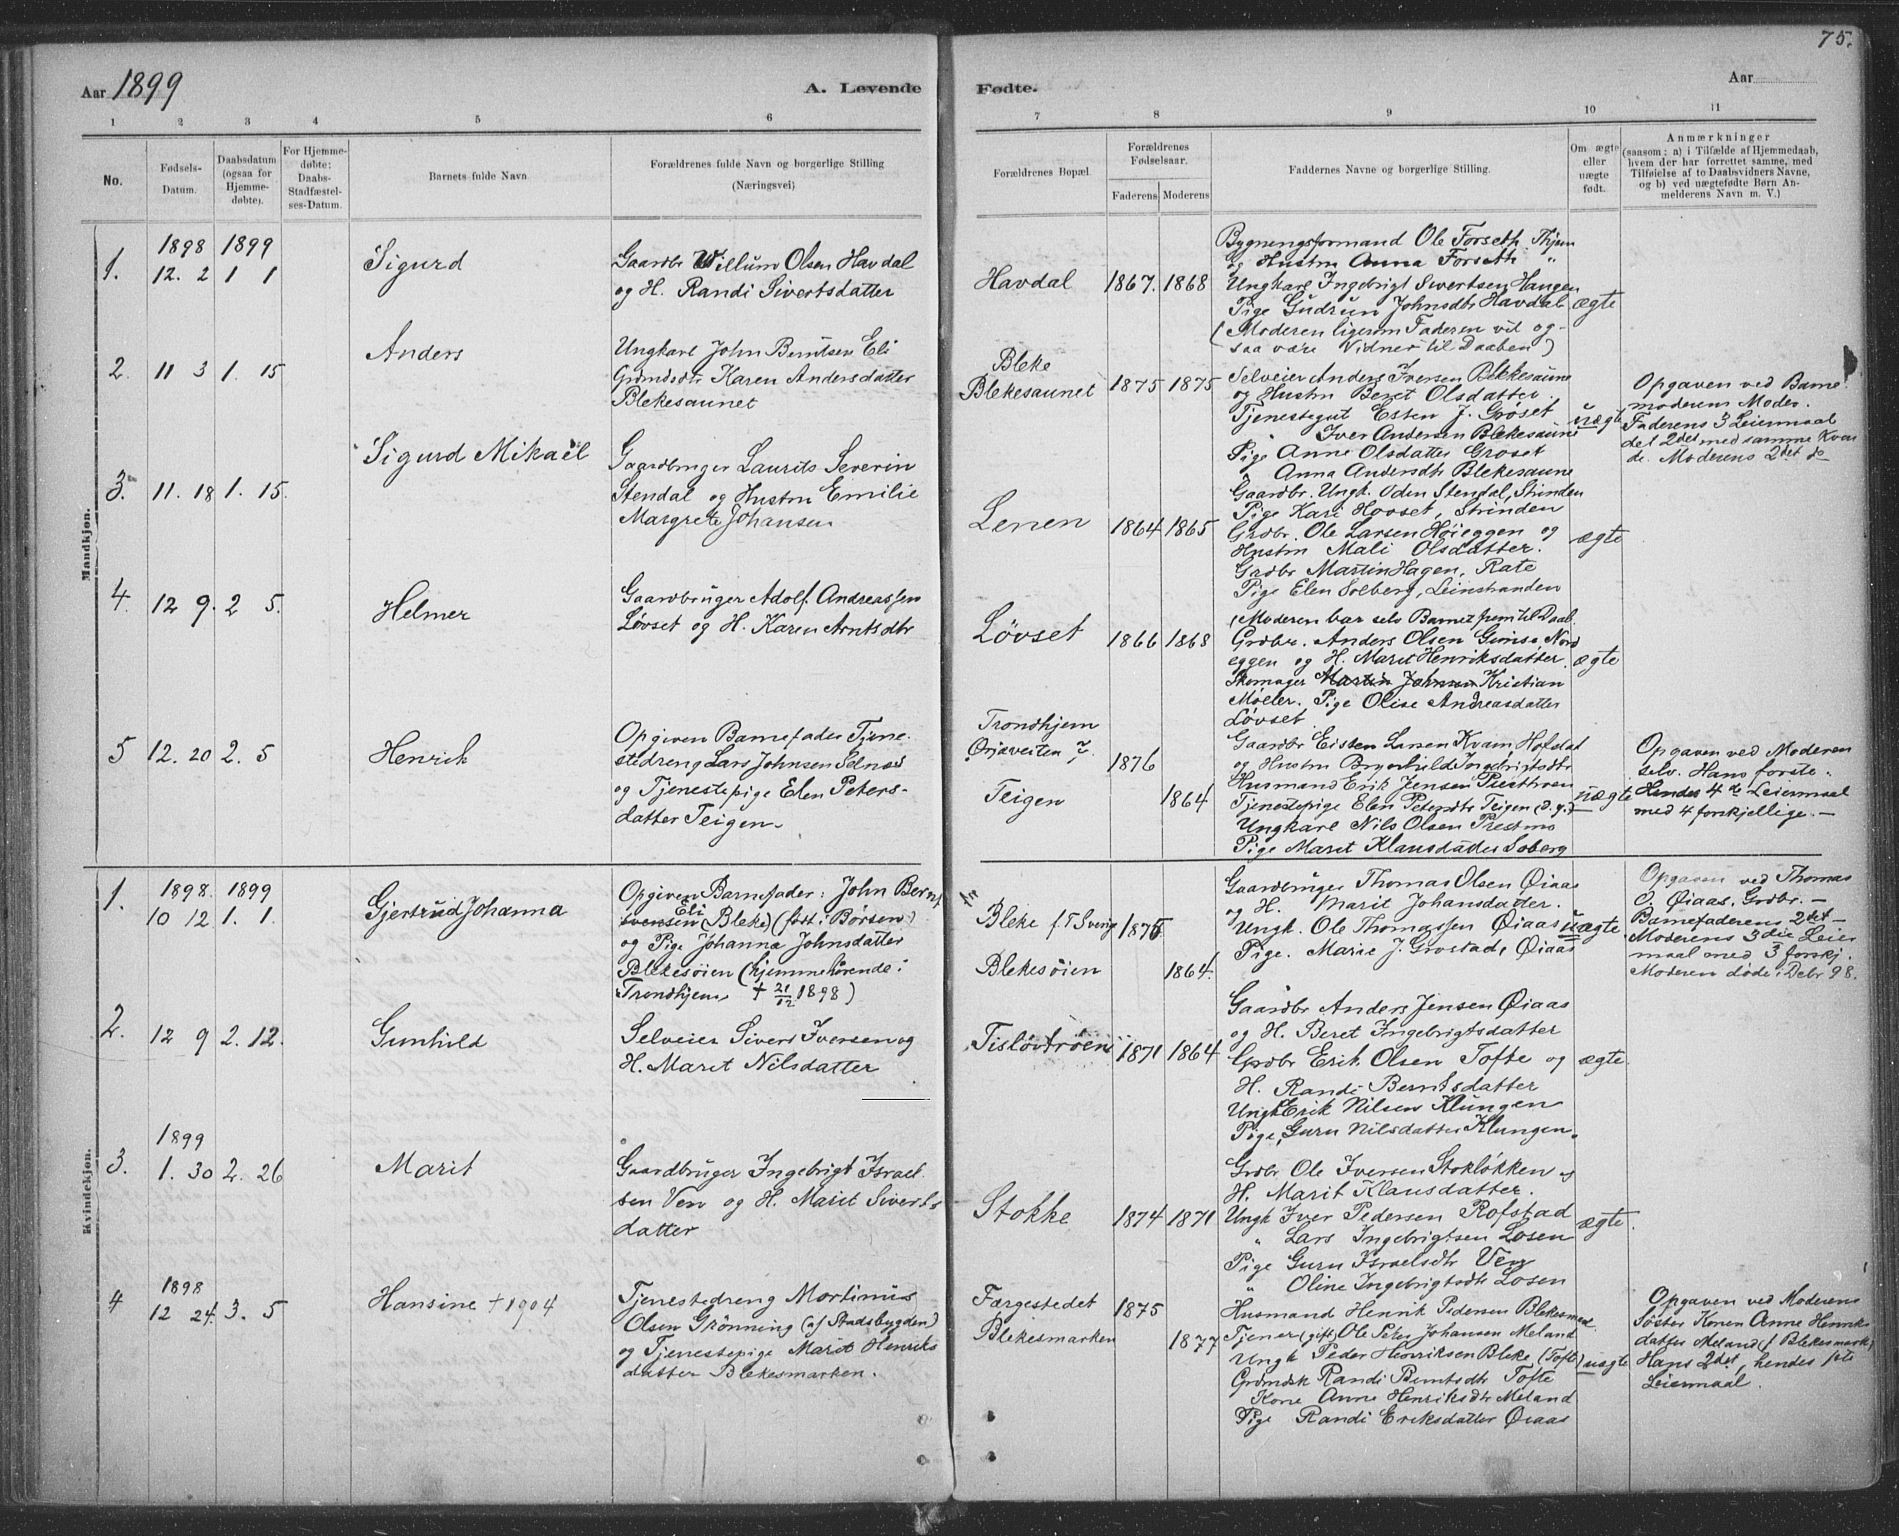 75.
Aar 1899
A. Levende
Fødte.
Aar
1 2 3 4 5 6 7 8 9 10 11
No.
Fødsels-
Datum.
Daabsdatum
(ogsaa for
Hjemme-
døbte).
For Hjemme-
døbte;
Daabs-
Stadfæstel-
ses-Datum.
Barnets fulde Navn
Forældrenes fulde Navn og borgerlige Stilling
(Næringsvei)
Forældrenes Bopæl.
Forældrenes
Fødselsaar.
Faderens Moderens
Faddernes Navne og borgerlige Stilling.
Om ægte
eller
uægte
født.
Anmærkninger
(saasom; a) i Tilfælde af Hjemmedaab,
hvem der har forrettet samme, med
Tilføielse af to Daabsvidners Navne,
og b) ved uægtefødte Børn An-
melderens Navn m. V.)
Mandkjøn.
1898 1899
1. 12. 2 1 1
Sigurd
Gaardbr Willum Olsen Havdal
og H. Randi Sivertsdatter
Havdal
1867. 1868
Bygningsformand Ole Forseth, Thjem
og Hustru Anna Forseth "
Ungkarl Ingebrigt Sivertsen Haugen
Pige Gudrun Johnsdtr Havdal
(Moderen ligesom Faderen vil og-
saa være Vidner til Daaben)
ægte
2. 11 3 1. 15
Anders
Ungkarl John Berntsen Eli
Grdmdsdtr Karen Andersdatter
Blekesaunet
Bleke
Blekesaunet
1875 1875
Selveier Anders Iversen Blekesaune
og Hustru Beret Olsdatter.
Tjenestegut Esten J. Grøset
Iver Andersen Blekesaune
Pige Anne Olsdatter Grøset
" Anna Andersdtr Blekesaune
uægte
Opgaven ved Barne-
moderens Moder.
Faderens 3 Leiermaal
det 2det med samme Kvin
de. Moderens 2det do
3. 11. 18 1. 15.
Sigurd Mikael
Gaardbruger Laurits Severin
Stendal og Hustru Emilie
Margrete Johansen
Lenen
1864 1865
Gaardbr. Ungk. Oden Stendal, Strinden
Pige Kari Hovset, Strinden
Grdbr. Ole Larsen Høieggen og
Hustru Mali Olsdatter.
Grdbr Martin Hagen, Rate
Pige Elen Solberg, Leinstranden
ægte
4. 12 9. 2 5.
Helmer
Gaardbruger Adolf Andreassen
Løvset og H. Karen Arntsdtr
Løvset
1866 1868
(Moderen bar selv Barnet frem til Daab.
Grdbr. Anders Olsen Gimse Nord
eggen og H. Marit Henriksdatter
Skomager Martin Johnsen Kristian
Møller. Pige Olise Andreasdatter
Løvset.
ægte
5 12. 20 2. 5
Henrik
Opgiven Barnefader Tjene-
stedreng Lars Johnsen Selnæs
og Tjenestepige Elen Peters-
datter Teigen.
Trondhjem
Ørjaveiten 7.
Teigen
1876
1864
Gaardbr Eisten Larsen Kvam, Hofstat
og Hustru Brynhild Ingebrigtsdtr
Husmand Erik Jensen
Tjenestepige Elen Petersdtr Teigen
Ungkarl Nils Olsen Prestmo
Pige Marit Klausdatter Soberg
uægte
Opgaven ved Moderen
selv. Hans første.
Hendes 4de Leiermaal
med 4 forskjellige.—
Kvindekjøn.
1898. 1899
1. 10 12 1. 1.
Gjertrud Johanna
Opgiven Barnefader: John Bernt
Eli
ivensen (Bleke) (født i Børsen)
og Pige Johanna Johnsdatter
Blekesøien (hjemmehørende i
Trondhjem † 21/12 1898)
Bleke f. T Sverige
Blekesøien
1875
1864.
Gaardbruger Thomas Olsen Øiaas
og H. Marit Johansdatter.
Ungk. Ole Thomassen Øiaas
Pige. Marie J. Grostad, Øiaas
uægte
Opgaven ved Thomas
O. Øiaas, Grdbr.—
Barnefaderens 2det—
Moderens 3die Leier
maal med 3 forskj.
Moderen døde i Debr 98.
2. 12 9 2. 12.
Gunhild
Selveier Sivert Iversen og
H. Marit Nilsdatter
Tisløvtrøen
1871 1864
Gaardbr Anders Jensen Øiaas
og H. Beret Ingebrigtsdatter
Grdbr Erik Olsen Tofte og
H. Randi Berntsdatter
Ungk. Erik Nilsen Klungen
Pige, Guru Nilsdatter Klungen.
ægte
1899
3. 1. 30 2. 26
Marit
Gaardbruger Ingebrigt Israel-
sen Ven og H. Marit Siverts
datter
Stokke
1874 1871
Grdbr Ole Iversen Stokløkken og
H. Marit Klausdatter.
Ungk Iver Pedersen Rofstad
" Lars Ingebrigtsen Losen
Pige Guru Israelsdtr Ven
" Oline Ingebrigtsdtr Losen
ægte.
1898
4 12 24. 3. 5
Hansine † 1904
Tjenestedreng Mortinus
Olsen Grønning (af Stadsbygden)
og Tjenestepige Marit Henriks
datter Blekesmarken.
Færgestedet
Blekesmarken
1875
1877
Husmand Henrik Pedersen Blekesmad.
Tjener (gift) Ole Peter Johansen Meland
Ungk Peder Henriksen Bleke (Tofte)
Grdmdsk Randi Berntsdtr Tofte
Kone Anne Henriksdtr Meland
Pige Randi Eriksdatter Øiaas
uægte
Opgaven ved Moderens
Søster Konen Anne Henriks
datter Meland (f Blekesmark)
Hans 2det, hendes 1ste
Leiermaal.